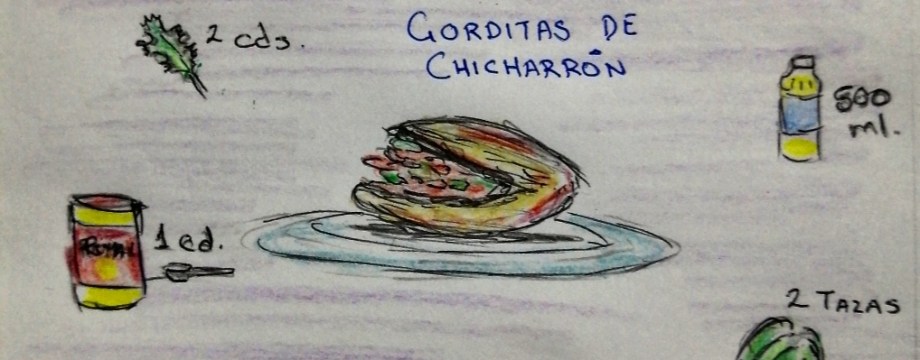 GORDITAS DE
CHICHARRÓN
2 cds.
500
ml.
1 cd.
2 TAZAS